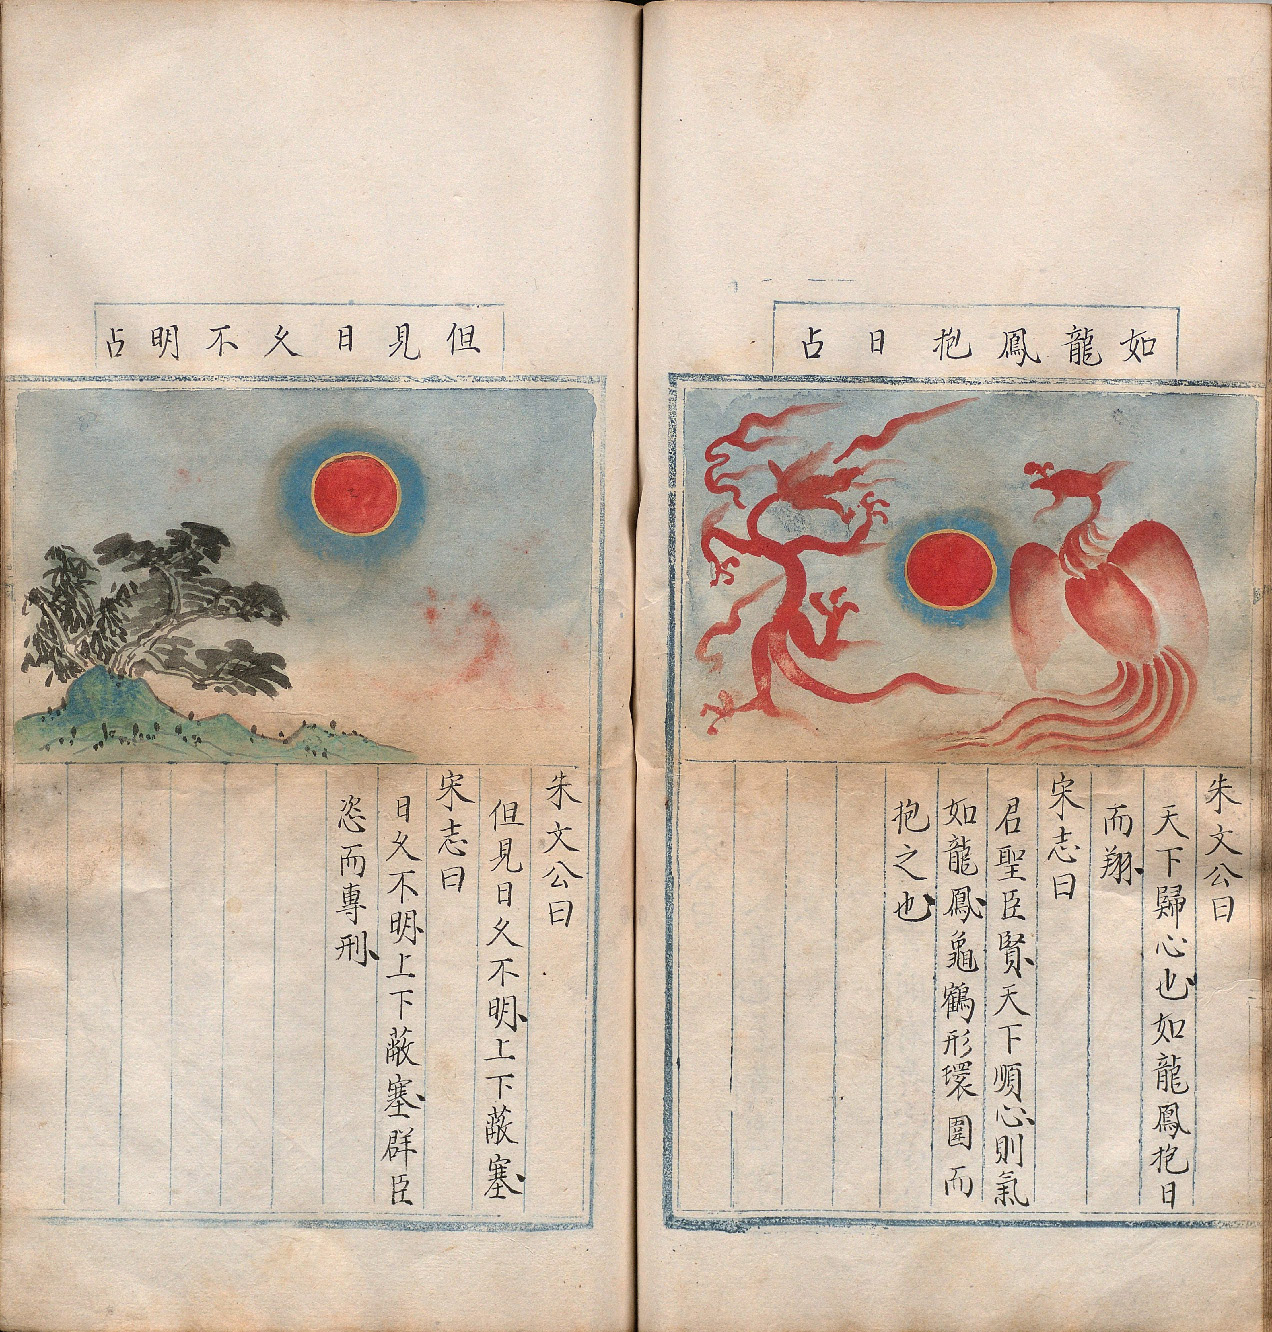 如龍鳳抱日占
朱文公曰
天下歸心也如龍鳳抱日
而翔
宋志曰
君聖臣賢天下順心則氣
如龍鳳龜鶴形環圍而
抱之也
但見日久不明占
朱文公曰
但見日久不明上下蔽塞
宋志曰
日久不明上下蔽塞群臣
恣而專刑